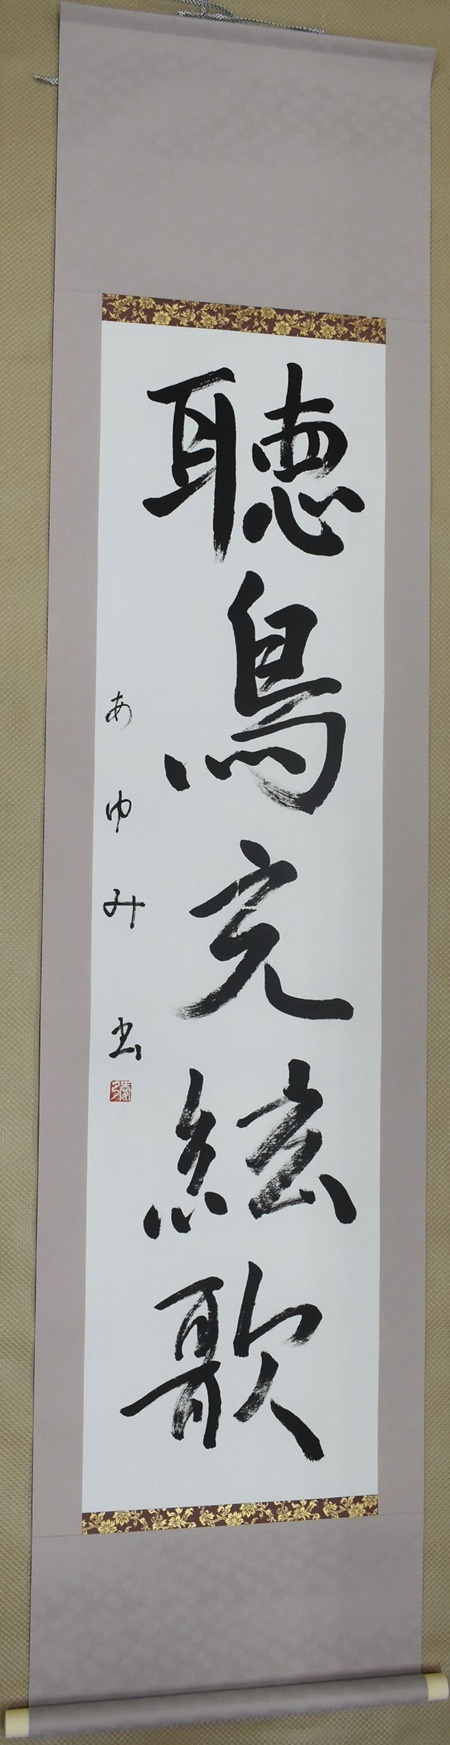 聴鳥充絃歌
あゆみ書